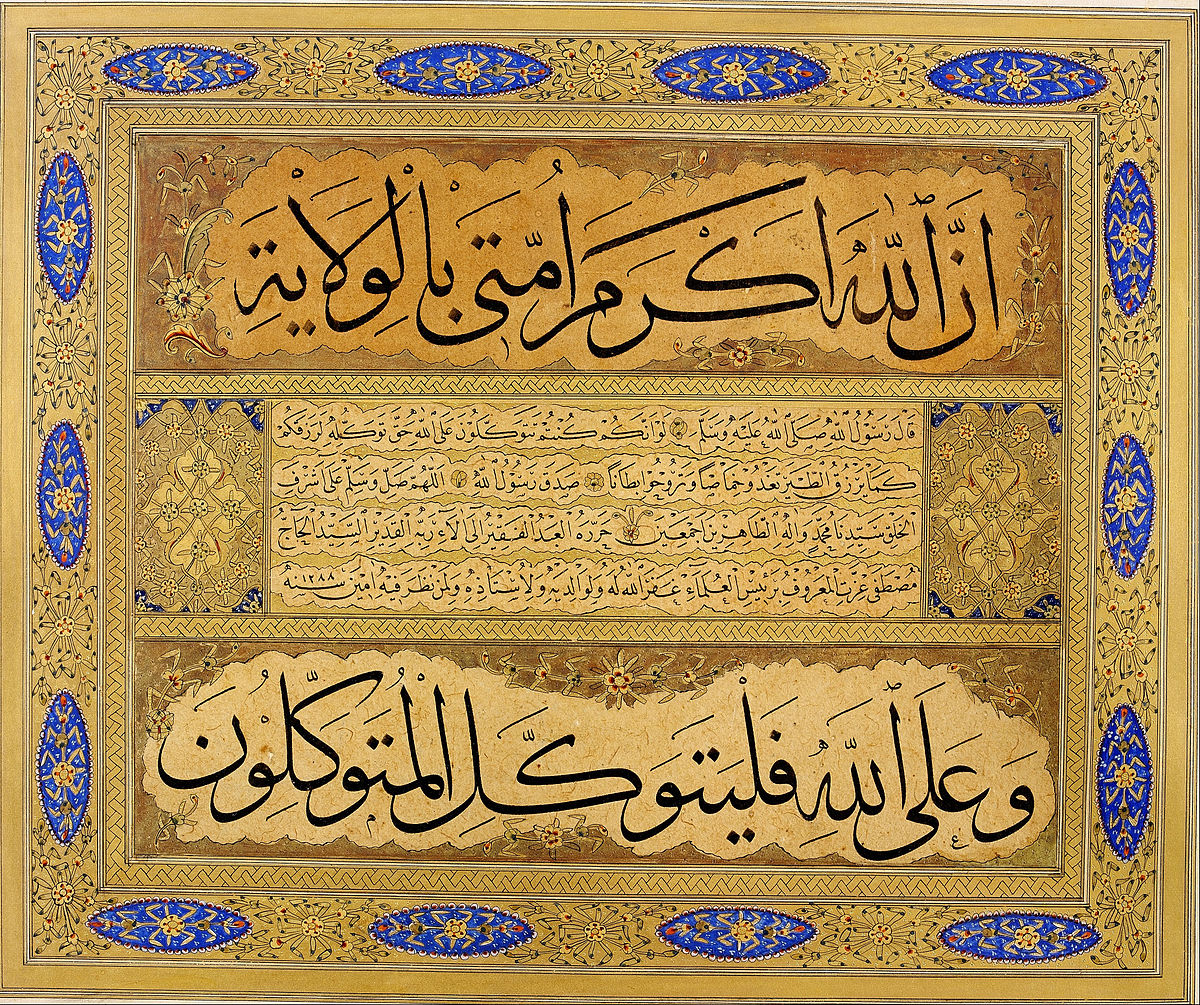 اِنَّ اللّٰهَ اَكْرَمَ اُمَّتى بِالْوِلَايَةِ
قَالَ رَسُولُ اللّٰه صَلَّى اللّٰهُ عَلَيْهِ وَسَلَّمَ لَوْ اَنَّكُمْ كُنْتُمْ تَتَوَكَّلُوْنَ عَلَى اللّٰهِ حَقَّ تَوَكُّلِهِ لَرَزَقَكُمْ
كَمَا يَرْزُقُ الطَّيْرَ تَغْدُو خِمَاصًا وَتَرُوْحُ بِطَانًا صَدَقَ رَسُولُ اللّٰه اَللّٰهُمَّ صَلِّ وَسَلِّمْ عَلَى اَشْرَفِ
الخَلْقِ سَيِّدِنَا مُحَمَّدٍ وَالِهِ الطَّاهِرِينَ اَجْمَعِينَ حَرَّرَهُ العَبْدُ الفَقِيْرُ اِلَى الَاءِ رَبِّهِ القَدِيْرِ السَّيِّدُ الحَاجُّ
مُصْطَفَى عِزَّت المَعْرُوفُ بِرَئِيْسِ العُلَمَاءِ غَفَرَ اللّٰهُ لَهُ وَلِوَالِدَيْهِ وَلِاُسْتَاذِهِ وَلِمَنْ نَظَرَ فِيْهِ اٰمِيْن سَنَه ١٢٨٨
وَعَلَى اللّٰهِ فَلْيَتَوَكَّلِ الْمُتَوَكِّلُوْنَ